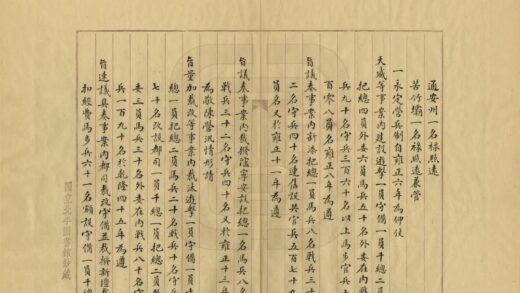 通安州一名祿照遠
苦竹壩一名祿照遠兼營
一永定營兵制自雍正六年為仰仗
天威等事案內建設遊擊一員守備一員千
把總四員外委六員馬兵五十名外委在內戰
兵九十名守兵三百六十名以上馬步官兵五
百零八員名雍正八年為遵
旨議奏事案內新添把總一員馬兵八名戰兵三十
二名守兵四十名連舊設共官兵五百七十九
員名又於雍正十一年為遵
旨議奏事案內裁撥寧安設把總一員馬兵八名
戰兵三十二名守兵四十名又於雍正十三年
為敬陳營汛情形請
旨量加裁改等事案內裁汰遊擊一員守備一員千
總一員把總二員馬兵二十名戰兵十名守兵
七十名改設都司一員千總一員把總二員外
委三員馬兵三十名外委在內戰兵十名守
兵一百九十名於乾隆四十五年為遵
旨速議具奏事案內都司改設守備並裁撥新疆
扣經費馬步兵六十一名額設守備一員千
國立北平圖書館鈔藏